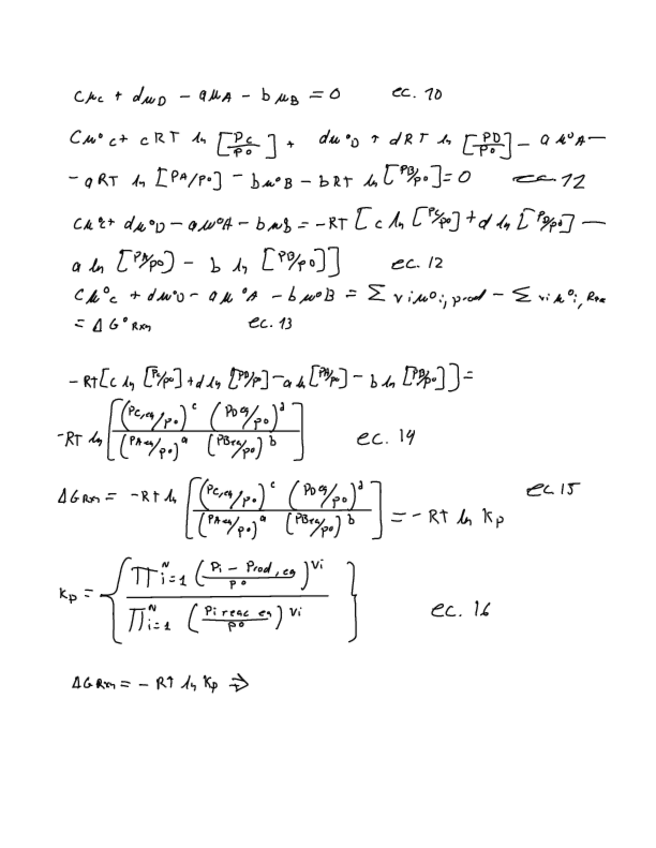 cμc + dμD − aμA − bμB = 0 ec. 10
Cμ°c + cRT ln [Pc/P°] + dμ°D + dRT ln [PD/P°] − aμ°A −
− aRT ln [PA/P°] − bμ°B − bRT ln [PB/P°] = 0 ec. 12
cμ°c + dμ°D − aμ°A − bμ°B = −RT [c ln [Pc/P°] + d ln [PD/P°] −
a ln [PA/P°) − b ln [PB/P°]] ec. 12
Cμ°c + dμ°D − aμ°A − bμ°B = Σ νiμ°i,prod − Σ νiμ°i,Rxn
= ΔG°Rxn ec. 13
−RT[c ln [Pc/P°] + d ln [PD/P°] − a ln [PA/P°] − b ln [PB/P°]] =
−RT ln [(Pc,eq/P°)^c (PD eq/P°)^d / (PA eq/P°)^a (PB eq/P°)^b] ec. 14
ΔGRxn = −RT ln [(Pc,eq/P°)^c (PD eq/P°)^d / (PA eq/P°)^a (PB eq/P°)^b] = −RT ln Kp ec 15
Kp = {∏ᴺi=1 (Pi − Prod, eq / P°)^Vi / ∏ᴺi=1 (Pi reac eq / P°)^Vi} ec. 16
ΔGRxn = − RT ln Kp ⇒